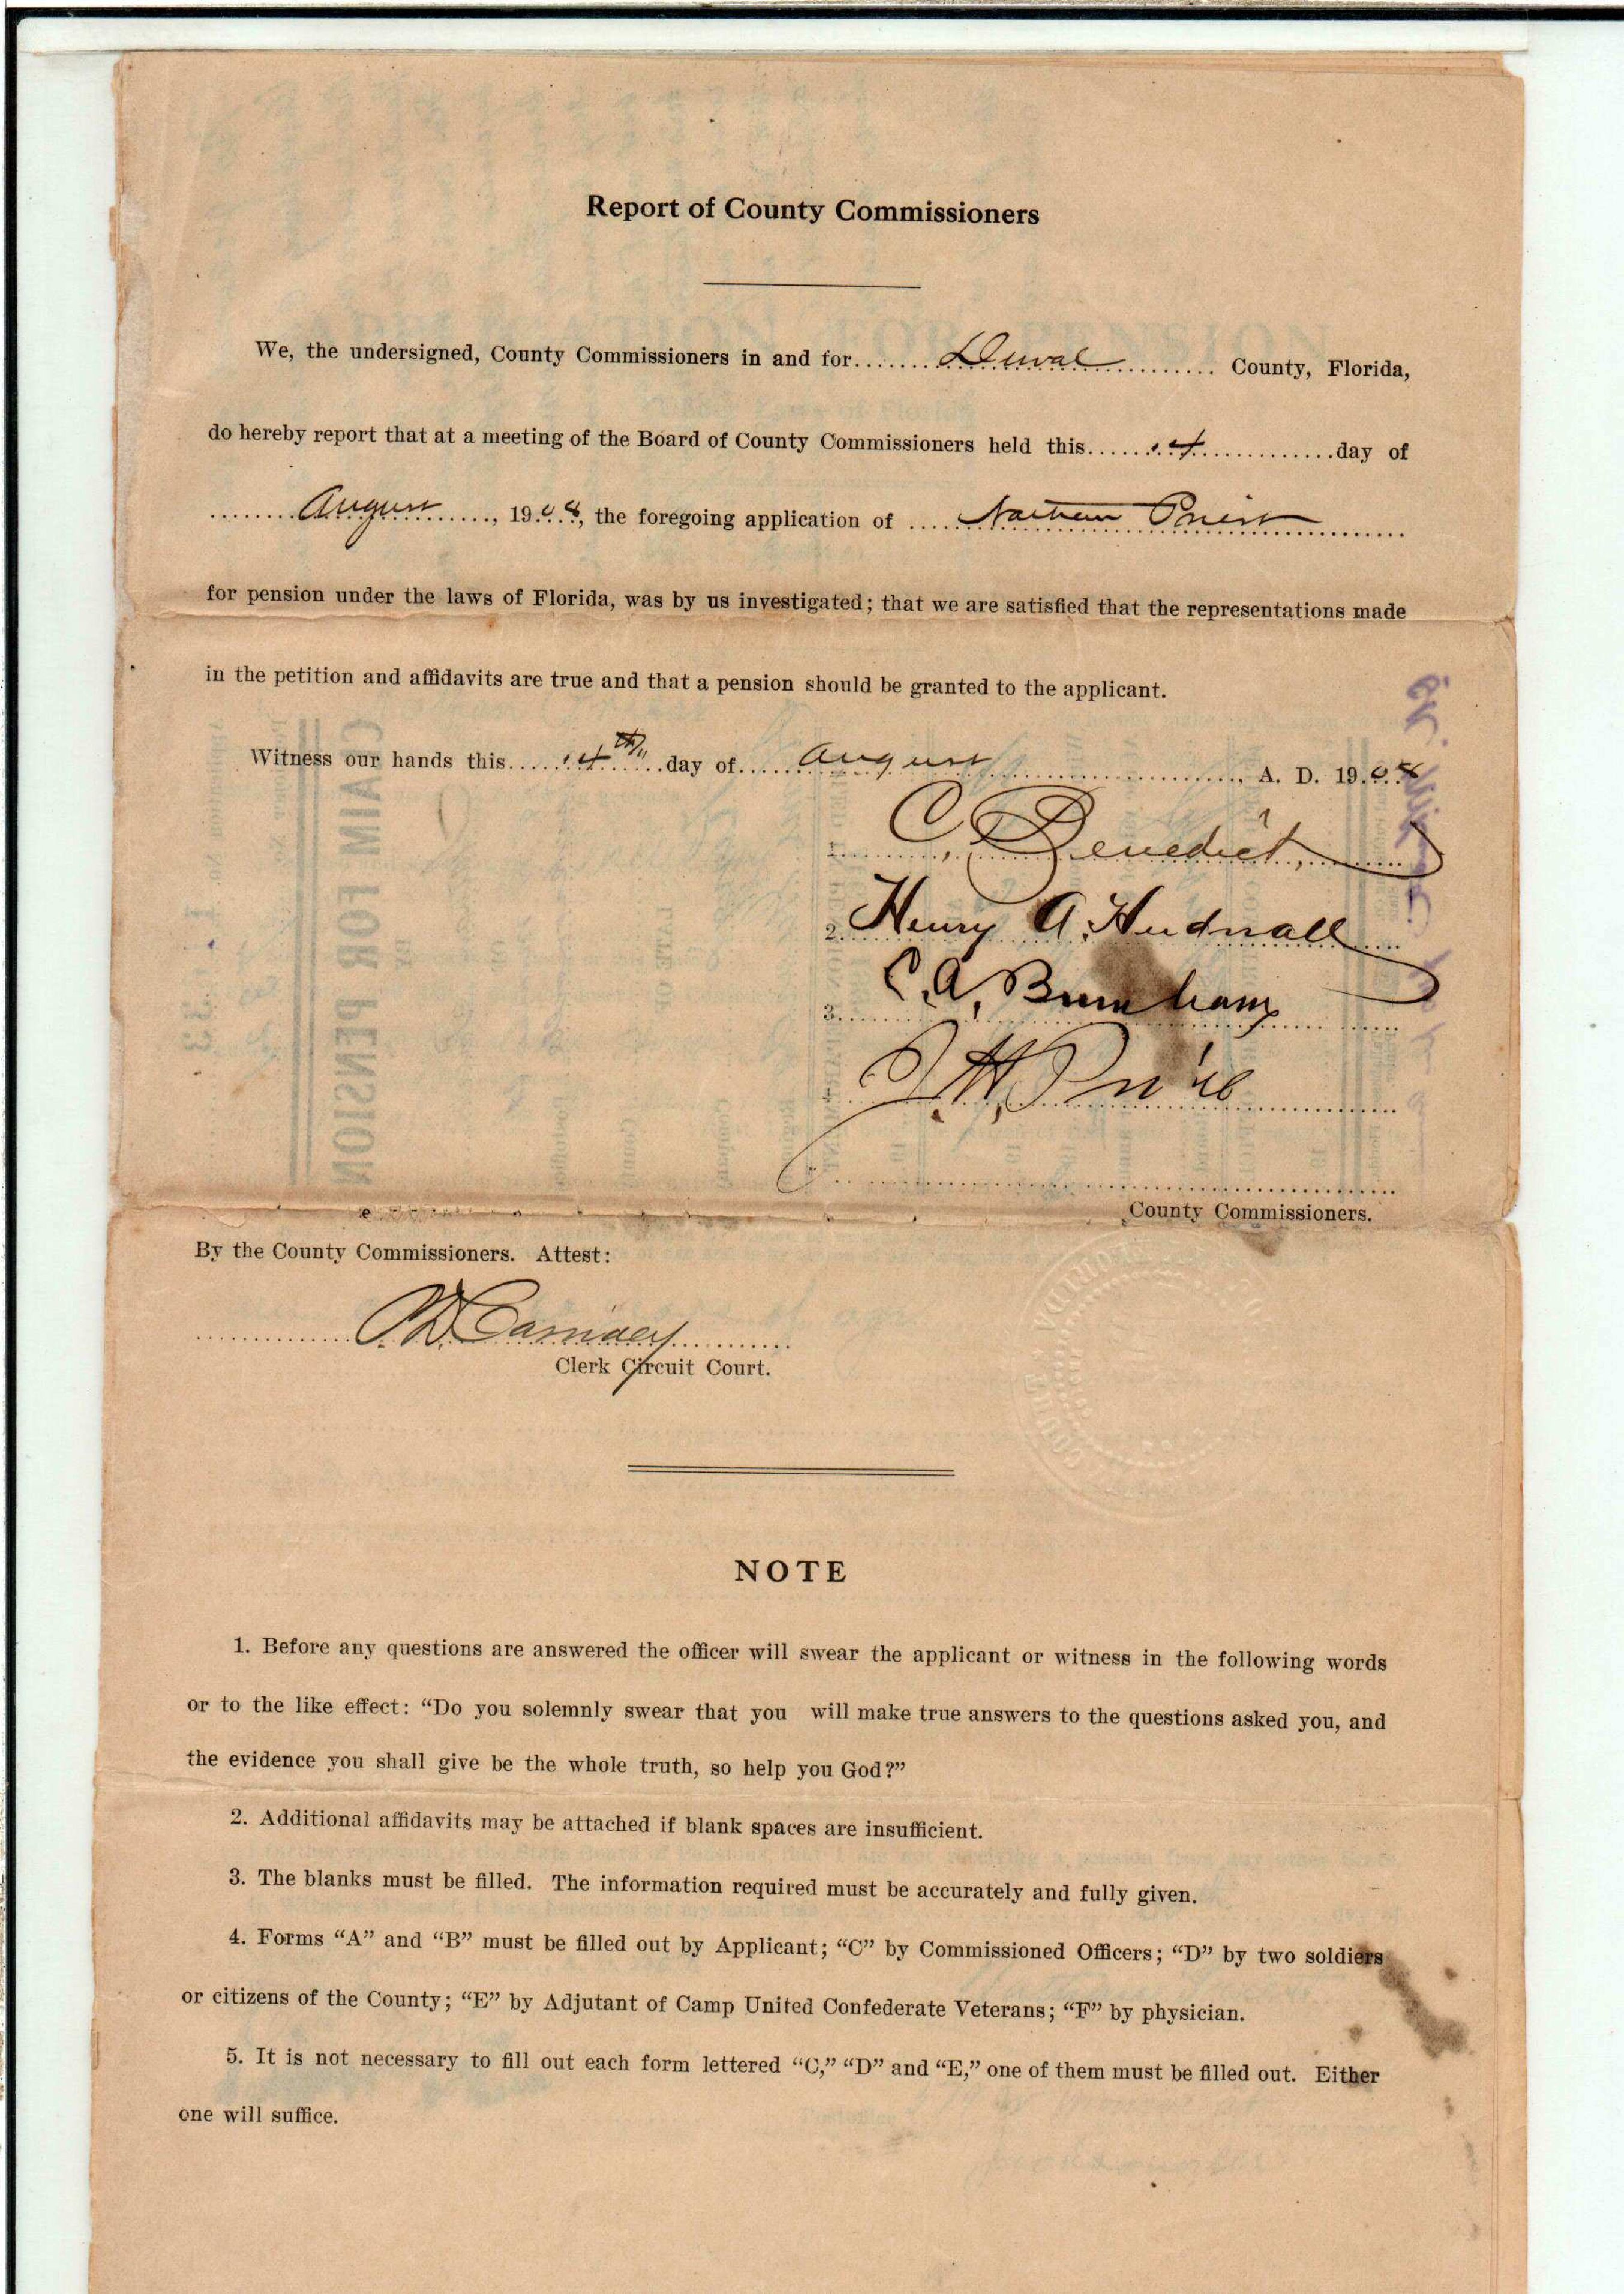 Report of County Commissioners
We, the undersigned, County Commissioners in and for....... Duval .......... County, Florida,
do hereby report that at a meeting of the Board of County Commissioners held this...... 14 .............day of
........August......, 1908, the foregoing application of .... Nathan Priest
for pension under the laws of Florida, was by us investigated; that we are satisfied that the representations made
in the petition and affidavits are true and that a pension should be granted to the applicant.
Witness our hands this..... 14th ...day of..... August ........................., A. D. 1908
1. C Benedict,
2. Henry A. Hudnall
3. C. A. Burnham
County Commissioners.
By the County Commissioners. Attest:
Clerk Circuit Court.
NOTE
1. Before any questions are answered the officer will swear the applicant or witness in the following words
or to the like effect: “Do you solemnly swear that you will make true answers to the questions asked you, and
the evidence you shall give be the whole truth, so help you God?”
2. Additional affidavits may be attached if blank spaces are insufficient.
3. The blanks must be filled. The information required must be accurately and fully given.
4. Forms “A” and “B” must be filled out by Applicant; “C” by Commissioned Officers; “D” by two soldiers
or citizens of the County; “E” by Adjutant of Camp United Confederate Veterans; “F” by physician.
5. It is not necessary to fill out each form lettered “C,” “D” and “E,” one of them must be filled out. Either
one will suffice.